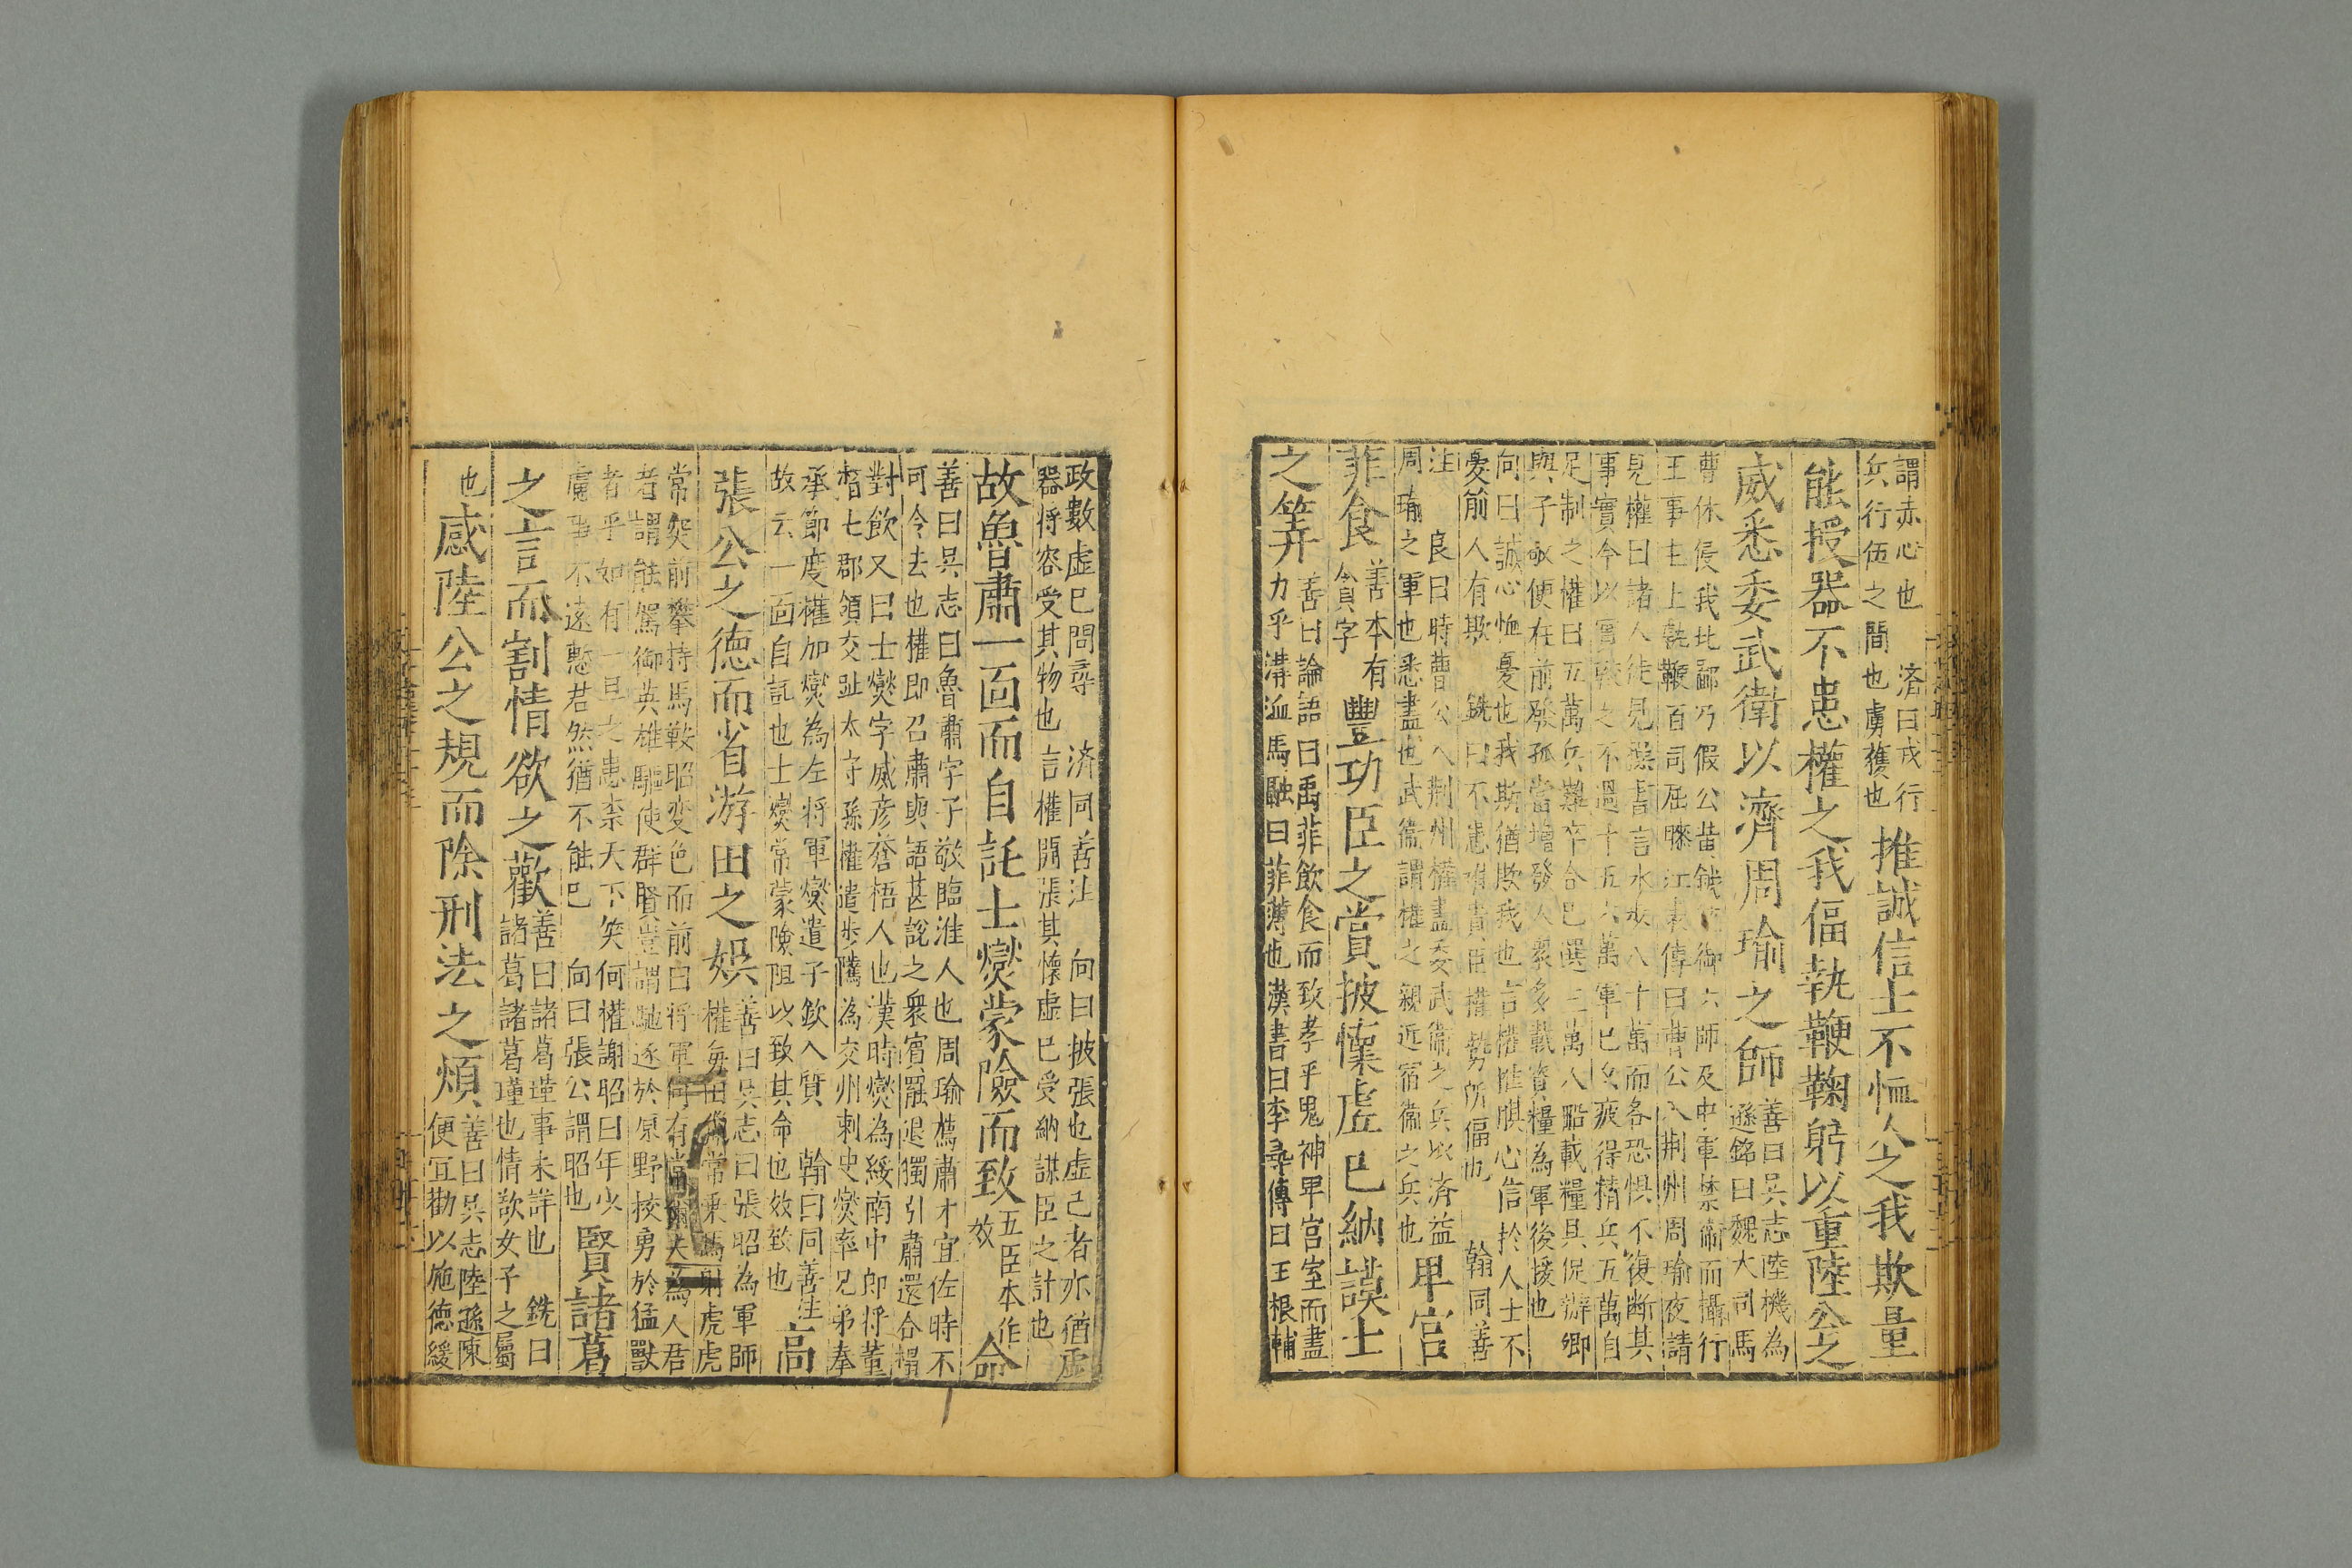 謂赤心也 済曰戎行
兵行伍之間也虜獲也
推誠信士不恤人之我欺量
能授器不患權之我偪執鞭鞠躬以重陸公之
威悉委武衛以濟周瑜之師
善曰吳志陸機為
遜銘曰魏大司馬
曹休侵我北鄙乃假公黄鉞 御六師及中軍禁衛而攝行
王事主上執鞭百司屈膝江表傳曰曹公入荆州周瑜夜請
見權曰諸人徒見操書言水步八十萬而各恐惧不復断其
事實今以實較之不過十五六萬軍已久疲得精兵五萬自
足制之權曰五萬兵難卒合已選三萬人船載糧具促辦卿
與子敬便在前發孤當增發人衆多載資糧為軍後援也
向曰誠心恤憂也我斯猶欺我也言權推腹心信扵人士不
憂前人有欺 銑曰不患唯責臣權勢所偪也 翰同善
注 良曰時曹公入荆州權盡委武衛之兵以済益
周瑜之軍也悉盡也武衛謂權之親近宿衛之兵也
卑宫
菲食
善本有
貪字
豐功臣之賞披懷虚已納謨士
之筭
善曰論語曰禹菲飲食而致孝乎鬼神卑宫室而盡
力乎溝洫馬融曰菲薄也漢書曰李尋傳曰王根輔
政數虚已問尋 済同善注 向曰披張也虚己者亦猶虚
器将容受其物也言權開張其懷虚已受納謀臣之計也
故魯肅一面而自託士燮蒙險而致
五臣本作
效
命
善曰吳志曰魯肅字子敬臨淮人也周瑜薦肅才宜佐時不
可令去也權即召肅與語甚說之衆賓罷退獨引肅還合榻
對飲又曰士燮字威彦蒼梧人也漢時燮為綏南中郎将董
督七郡領交趾太守孫權遣步隲為交州刺史燮率兄弟奉
承節度權加燮為左将軍燮遣子欽入質 翰曰同善注
故云一面自託也士燮常蒙險阻以致其命也效致也
高
張公之德而省游田之娱
善曰吳志曰張昭為軍師
權每田獵常乗馬射虎虎
常突前攀持馬鞍昭变色而前曰将軍何有當爾夫為人君
者謂能駕御英雄驅使群賢豈謂馳逐於原野挍勇於猛獸
者乎如有一旦之患柰天下笑何權謝昭曰年少
慮事不遠慙君然猶不能已 向曰張公謂昭也
賢諸葛
之言而割情欲之歡
善曰諸葛瑾事未詳也 銑曰
諸葛諸葛瑾也情欲女子之屬
也
感陸公之規而除刑法之煩
善曰吳志陸遜陳
便宜勸以施德緩